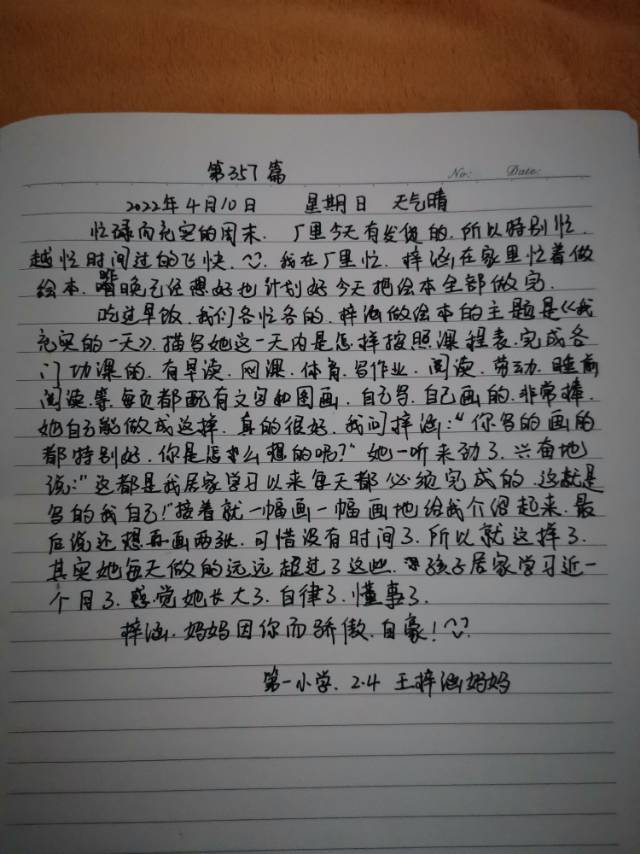 第357篇
No: Date:
2022年4月10日 星期日 天气晴
忙碌而充实的周末，厂里今天有发货的，所以特别忙，
越忙时间过的飞快，我在厂里忙，梓涵在家里忙着做
绘本，昨晚已经想好也计划好今天把绘本全部做完。
吃过早饭，我们各忙各的，梓涵做绘本的主题是《我
充实的一天》，描写她这一天内是怎样按照课程表，完成各
门功课的，有早读、网课、体育、写作业、阅读、劳动、睡前
阅读等，每页都配有文字和图画，自己写，自己画的，非常棒，
她自己能做成这样，真的很好，我问梓涵：“你写的画的
都特别好，你是怎么想的呢？”她一听来劲了，兴奋地
说：“这都是我居家学习以来每天都必须完成的，这就是
写的我自己！”接着就一幅画一幅画地给我介绍起来，最
后说还想再画两张，可惜没有时间了，所以就这样了，
其实她每天做的远远超过了这些，孩子居家学习近一
个月了，感觉她长大了，自律了，懂事了，
梓涵，妈妈因你而骄傲，自豪！
第一小学，2.4 王梓涵妈妈